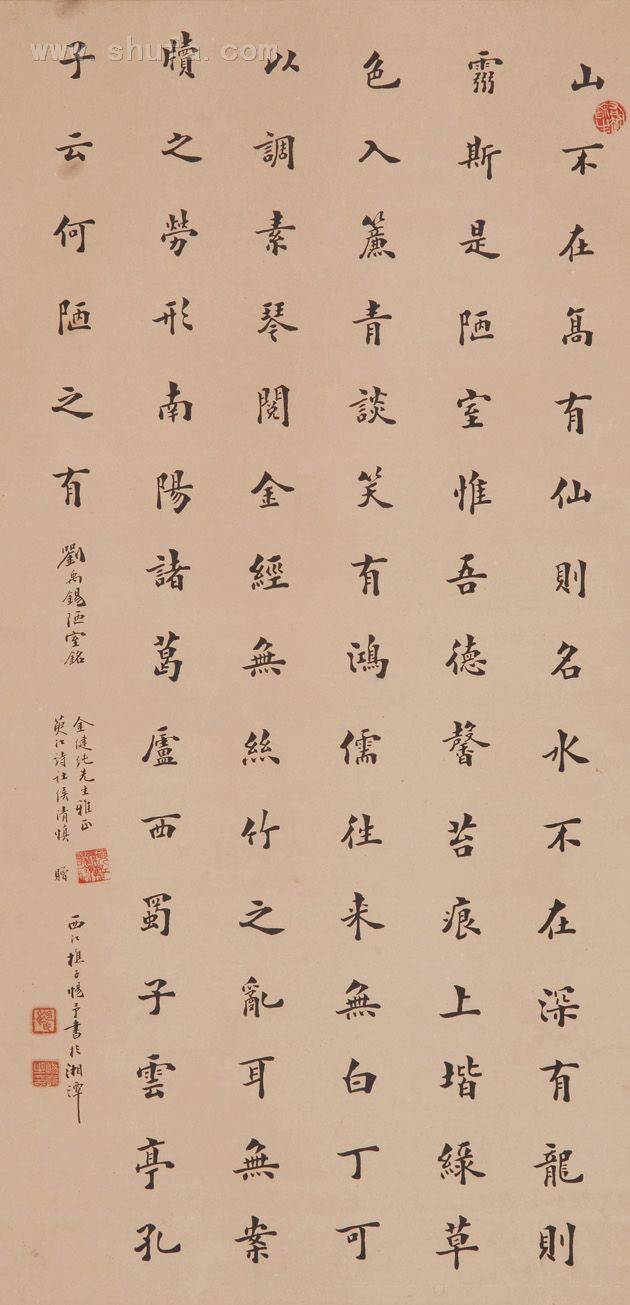 山不在髙有仙則名水不在深有龍則
靈斯是陋室惟吾德馨苔痕上堦綠草
色入簾青談笑有鴻儒往来無白丁可
以調素琴閱金經無絲竹之亂耳無案
牘之勞形南陽諸葛廬西蜀子雲亭孔
子云何陋之有
劉禹錫陋室銘
金健純先生雅正
萸江詩社侯清慎 贈
西江樵子惕予書於湘潭
www.shufa.com